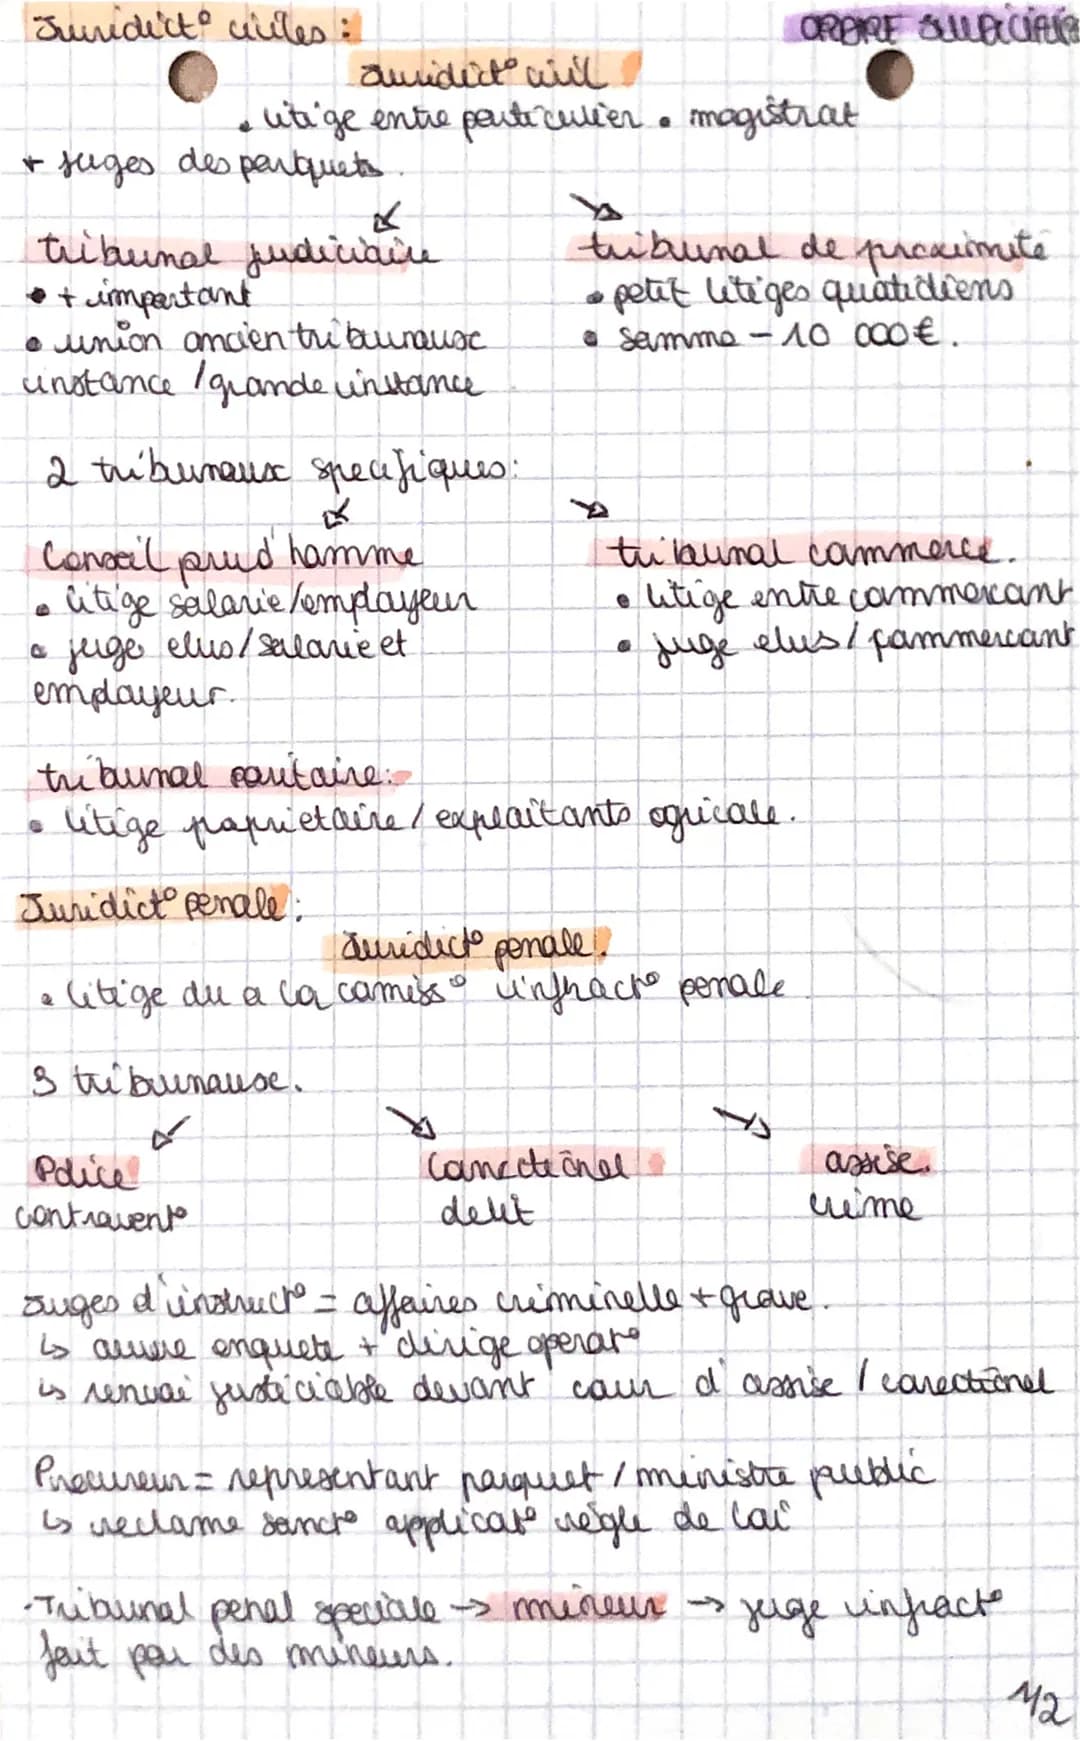 Juridict° civiles : ORDRE JUDICIAIRE
Juridict° civil
• litige entre particulier • magistrat
+ juges des parquets.
tribunal judiciaire tribunal de proximité
• + important • petit litiges quatidiens
• union ancien tribunaux • somme - 10 000€.
instance / grande instance
2 tribunaux specifiques:
Conseil prud'homme tribunal commerce.
• litige salarie/employeur • litige entre commercant
• juge elus/salarie et • juge elus / commercant
employeur.
tribunal paritaire:
• litige propriétaire / exploitants agricole.
Juridict° penale :
Juridict° penale.
• litige du a la comiss° infract° penale
3 tribunaux.
Police Correctionel assise.
contravent° delit crime
Juges d'instruct° = affaires criminelle + grave.
↳ ouvre enquete + dirige operat°
↳ renvoi justiciable devant cour d'assise / corectionel
Procureur = representant parquet / ministre public
↳ reclame sanct° applicat° règle de loi
-Tribunal penal speciale → mineur → juge infract°
fait par des mineurs.
1/2